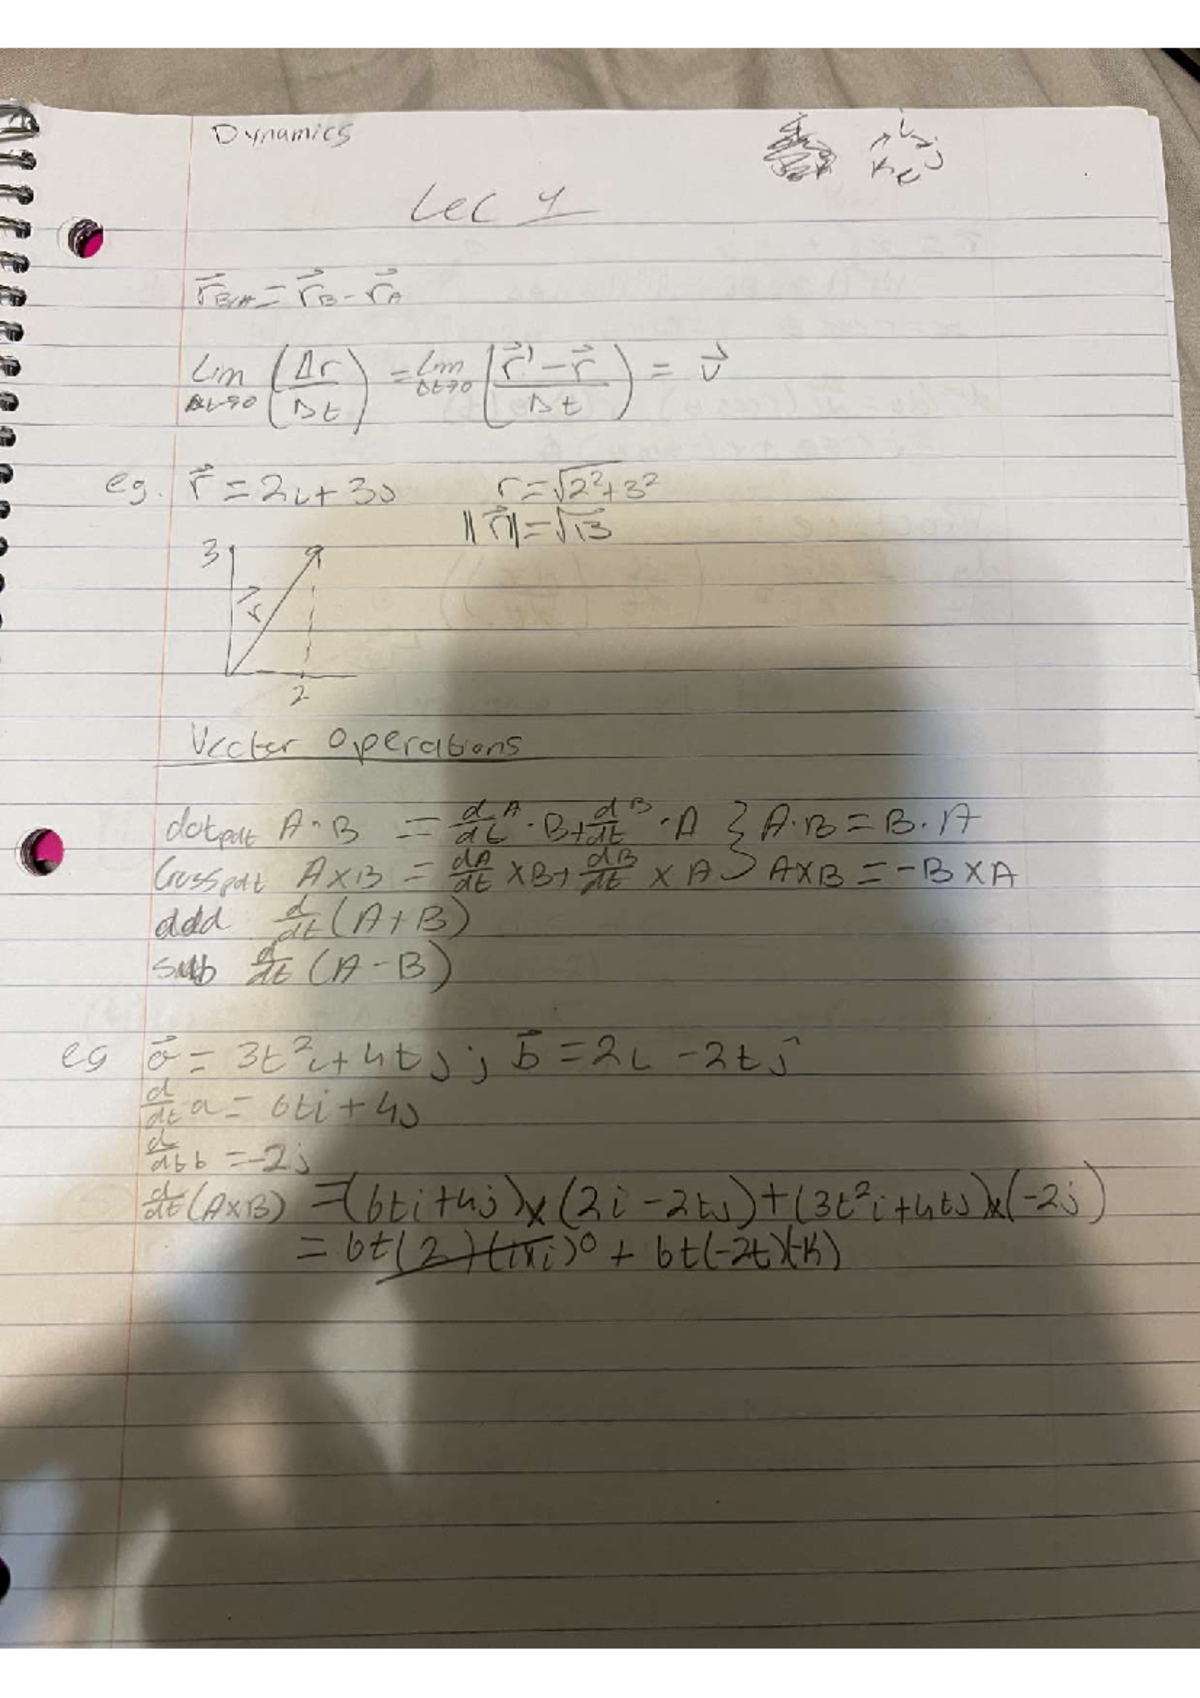 Dynamics
i j k
Lec 1
r⃗B/A = r⃗B - r⃗A
Lim Δt→0 (Δr/Δt) = lim Δt→0 ((r⃗' - r⃗)/Δt) = v⃗
eg. r⃗ = 2i + 3j r = √2² + 3²
||r⃗|| = √13
3
r⃗
2
Vector Operations
dot pdt A · B = d/dt A · B + d/dt B · A } A · B = B · A
Cross pdt A × B = dA/dt × B + dB/dt × A } A × B = -B × A
add d/dt (A + B)
sub d/dt (A - B)
eg a⃗ = 3t²i + 4tj ; b⃗ = 2i - 2tj
d/dt a = 6ti + 4j
d/dt b = -2j
d/dt (A×B) = (6ti + 4j) × (2i - 2tj) + (3t²i + 4tj) × (-2j)
= 6t(2)(i×i)⁰ + 6t(-2t)(-k)